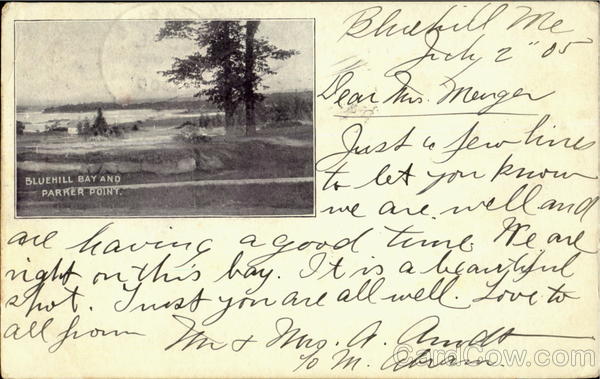 Bluehill Me
July 2" 05
Dear Mrs. Menger
Just a few lines
to let you know
we are well and
are having a good time. We are
right on this bay. It is a beautiful
spot. Trust you are all well. Love to
all from Mr & Mrs. A. Arndt
c/o M.
BLUEHILL BAY AND
PARKER POINT.
CardCow.com